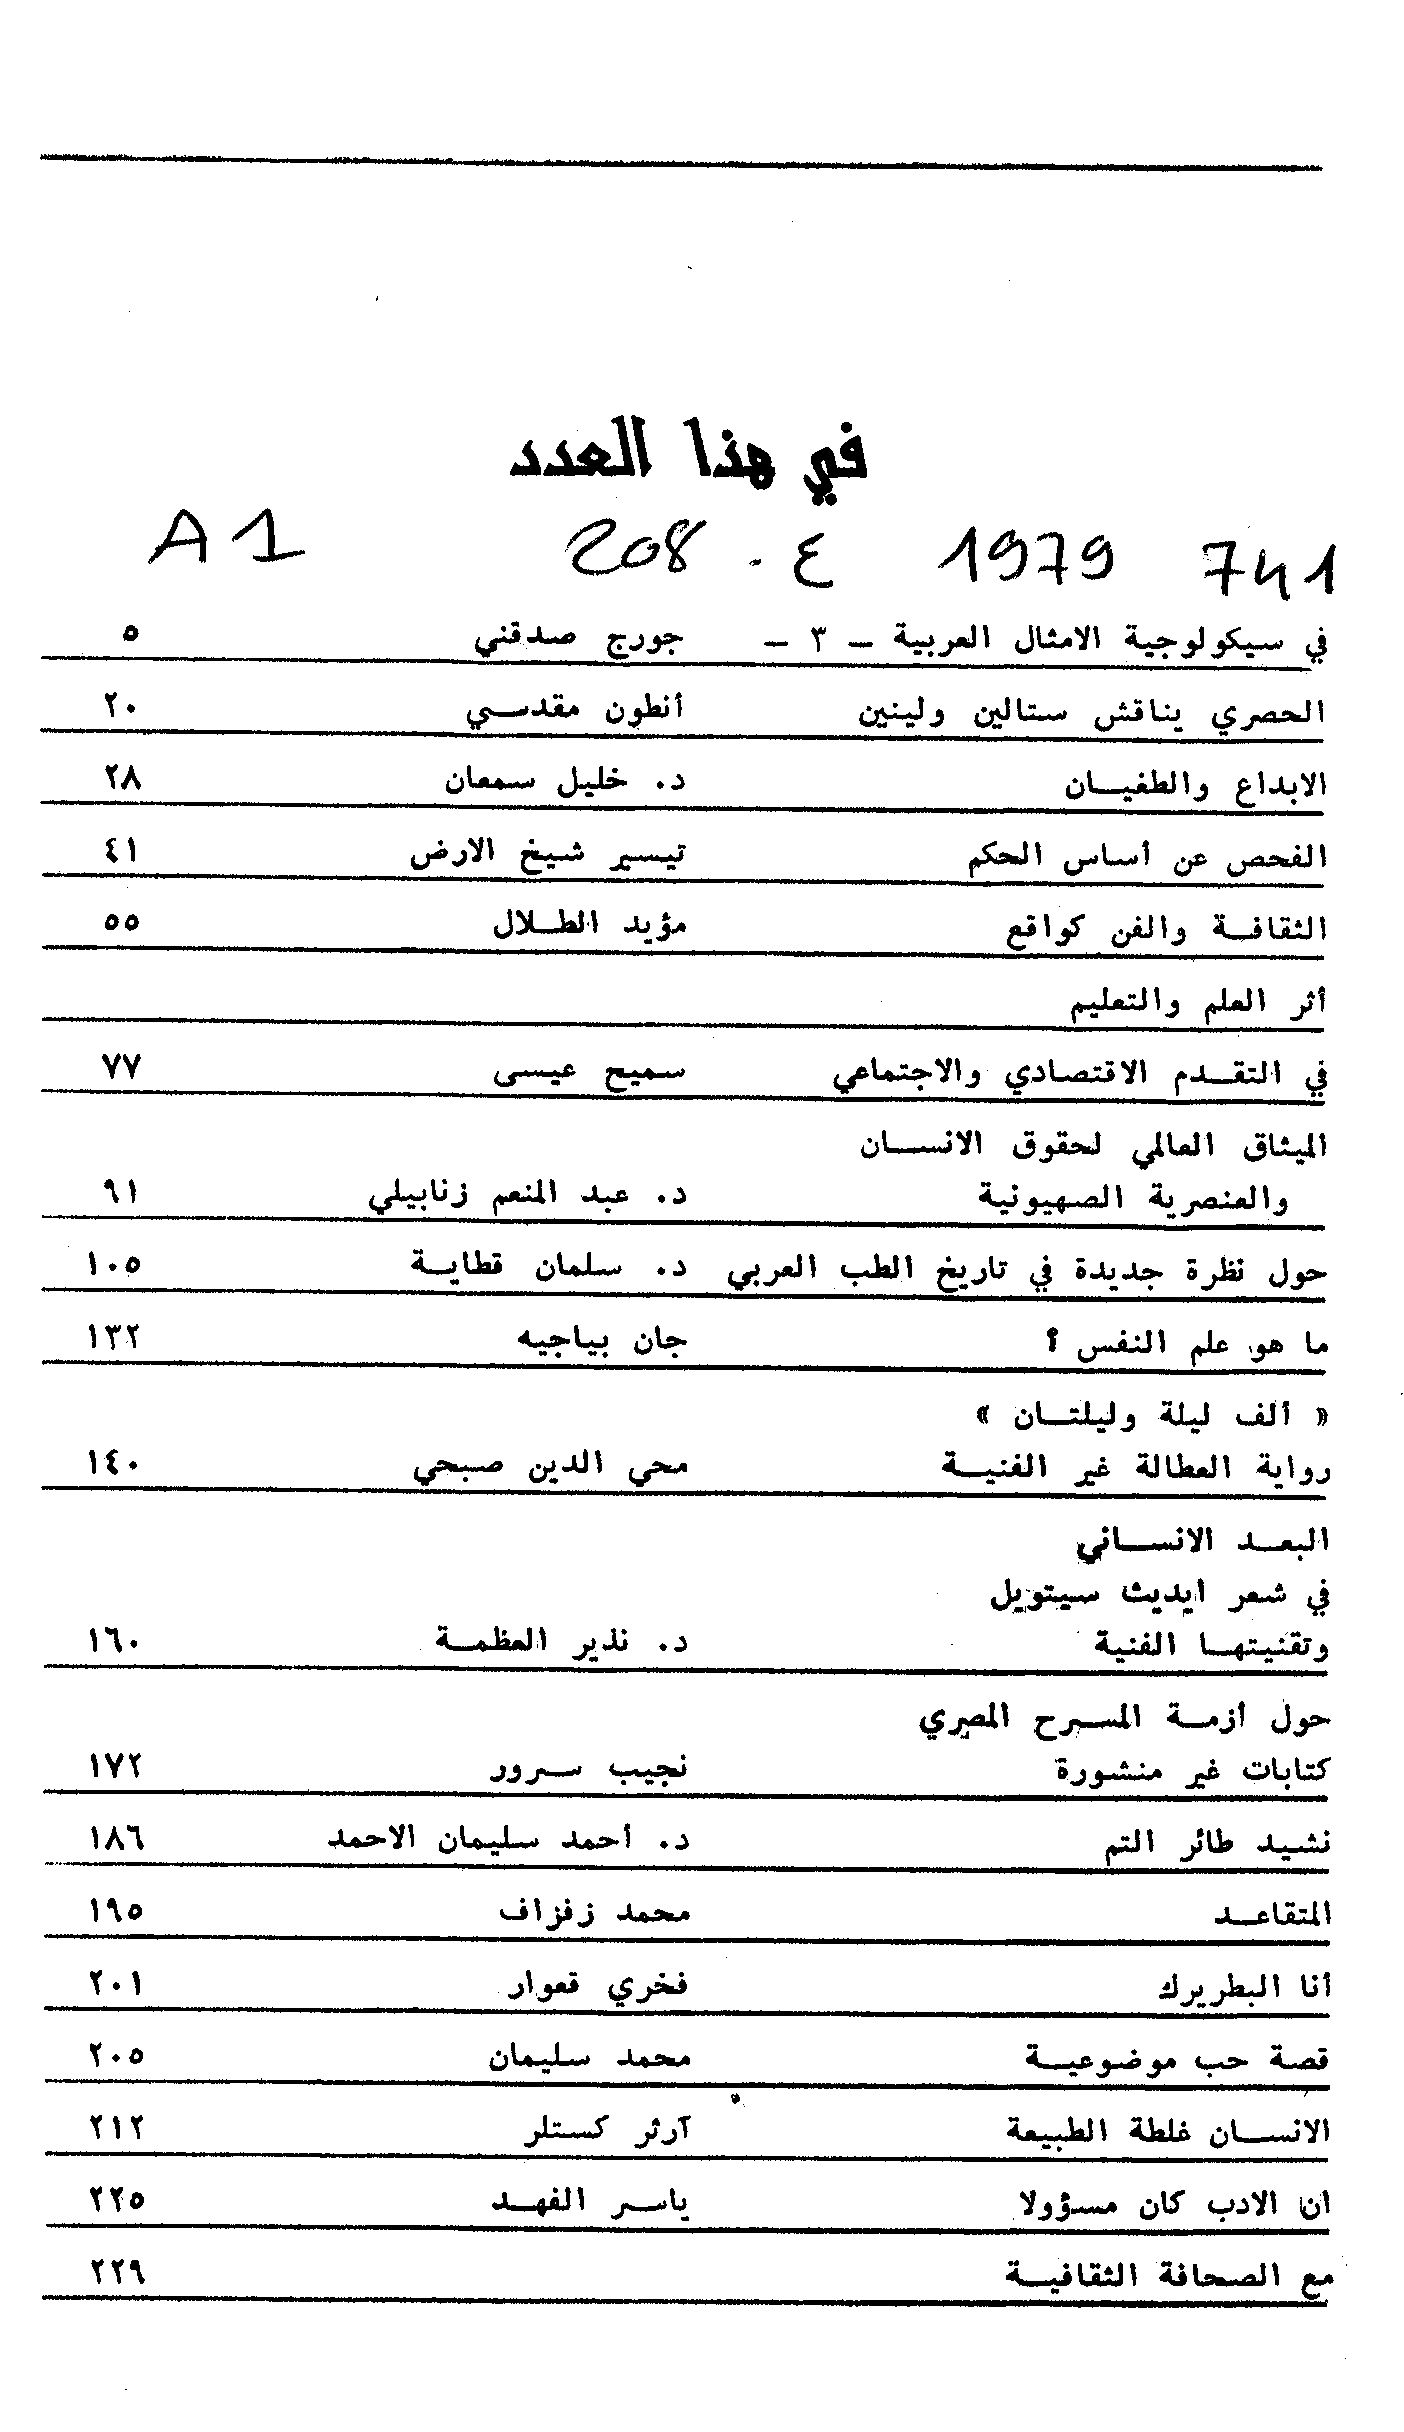 في هذا العدد
A1 208 . ع 1979 741
في سيكولوجية الامثال العربية – ٣ – جورج صدقني ٥
الحصري يناقش ستالين ولينين أنطون مقدسي ٢٠
الابداع والطغيان د. خليل سمعان ٢٨
الفحص عن أساس الحكم تيسير شيخ الارض ٤١
الثقافة والفن كواقع مؤيد الطلال ٥٥
أثر العلم والتعليم
في التقدم الاقتصادي والاجتماعي سميح عيسى ٧٧
الميثاق العالمي لحقوق الانسان
والعنصرية الصهيونية د. عبد المنعم زنابيلي ٩١
حول نظرة جديدة في تاريخ الطب العربي د. سلمان قطاية ١٠٥
ما هو علم النفس ؟ جان بياجيه ١٣٢
« ألف ليلة وليلتان »
رواية العطالة غير الفنية محي الدين صبحي ١٤٠
البعد الانساني
في شعر ايديث سيتويل
وتقنيتها الفنية د. نذير العظمة ١٦٠
حول أزمة المسرح المصري
كتابات غير منشورة نجيب سرور ١٧٢
نشيد طائر التم د. أحمد سليمان الاحمد ١٨٦
المتقاعد محمد زفزاف ١٩٥
أنا البطريرك فخري قعوار ٢٠١
قصة حب موضوعية محمد سليمان ٢٠٥
الانسان غلطة الطبيعة آرثر كستلر ٢١٢
ان الادب كان مسؤولا ياسر الفهد ٢٢٥
مع الصحافة الثقافية ٢٢٩